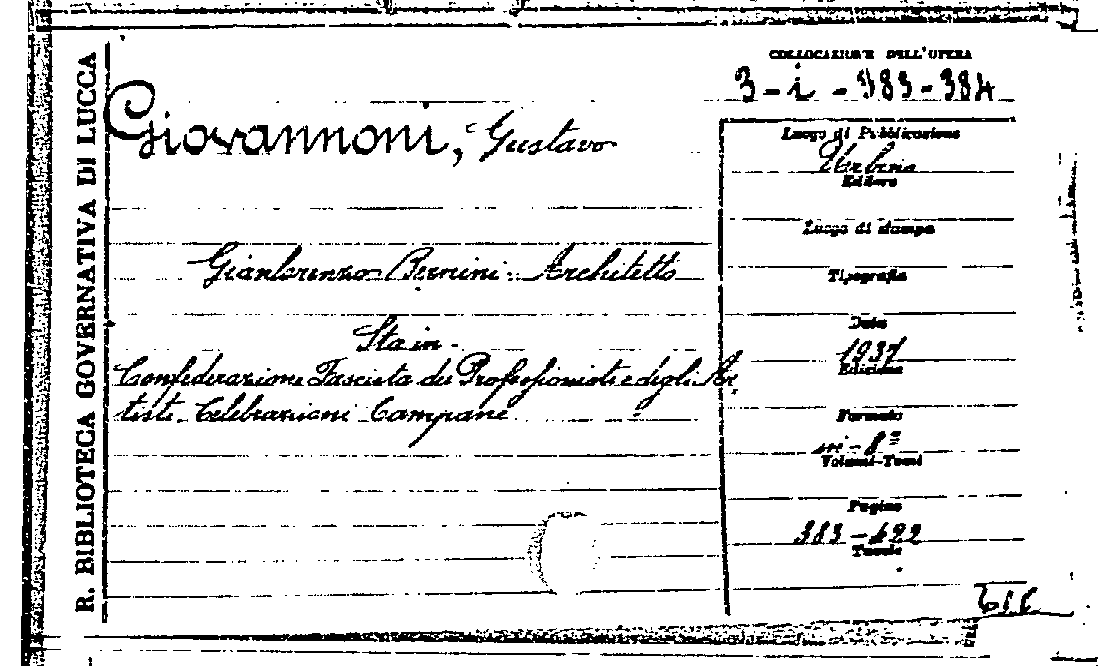 R. BIBLIOTECA GOVERNATIVA DI LUCCA
COLLOCAZIONE DELL'OPERA
3-i-383-384
Giovannoni, Gustavo
Luogo di Pubblicazione
Urbino
Editore
Luogo di stampa
Gianlorenzo Bernini. Architetto
Tipografia
Data
Sta in.
1937
Edizione
Confederazione Fascista dei Professionisti e degli Ar,
tisti. Celebrazioni Campane
Formato
in-8º
Volumi-Tomi
Pagine
383-422
Tavole